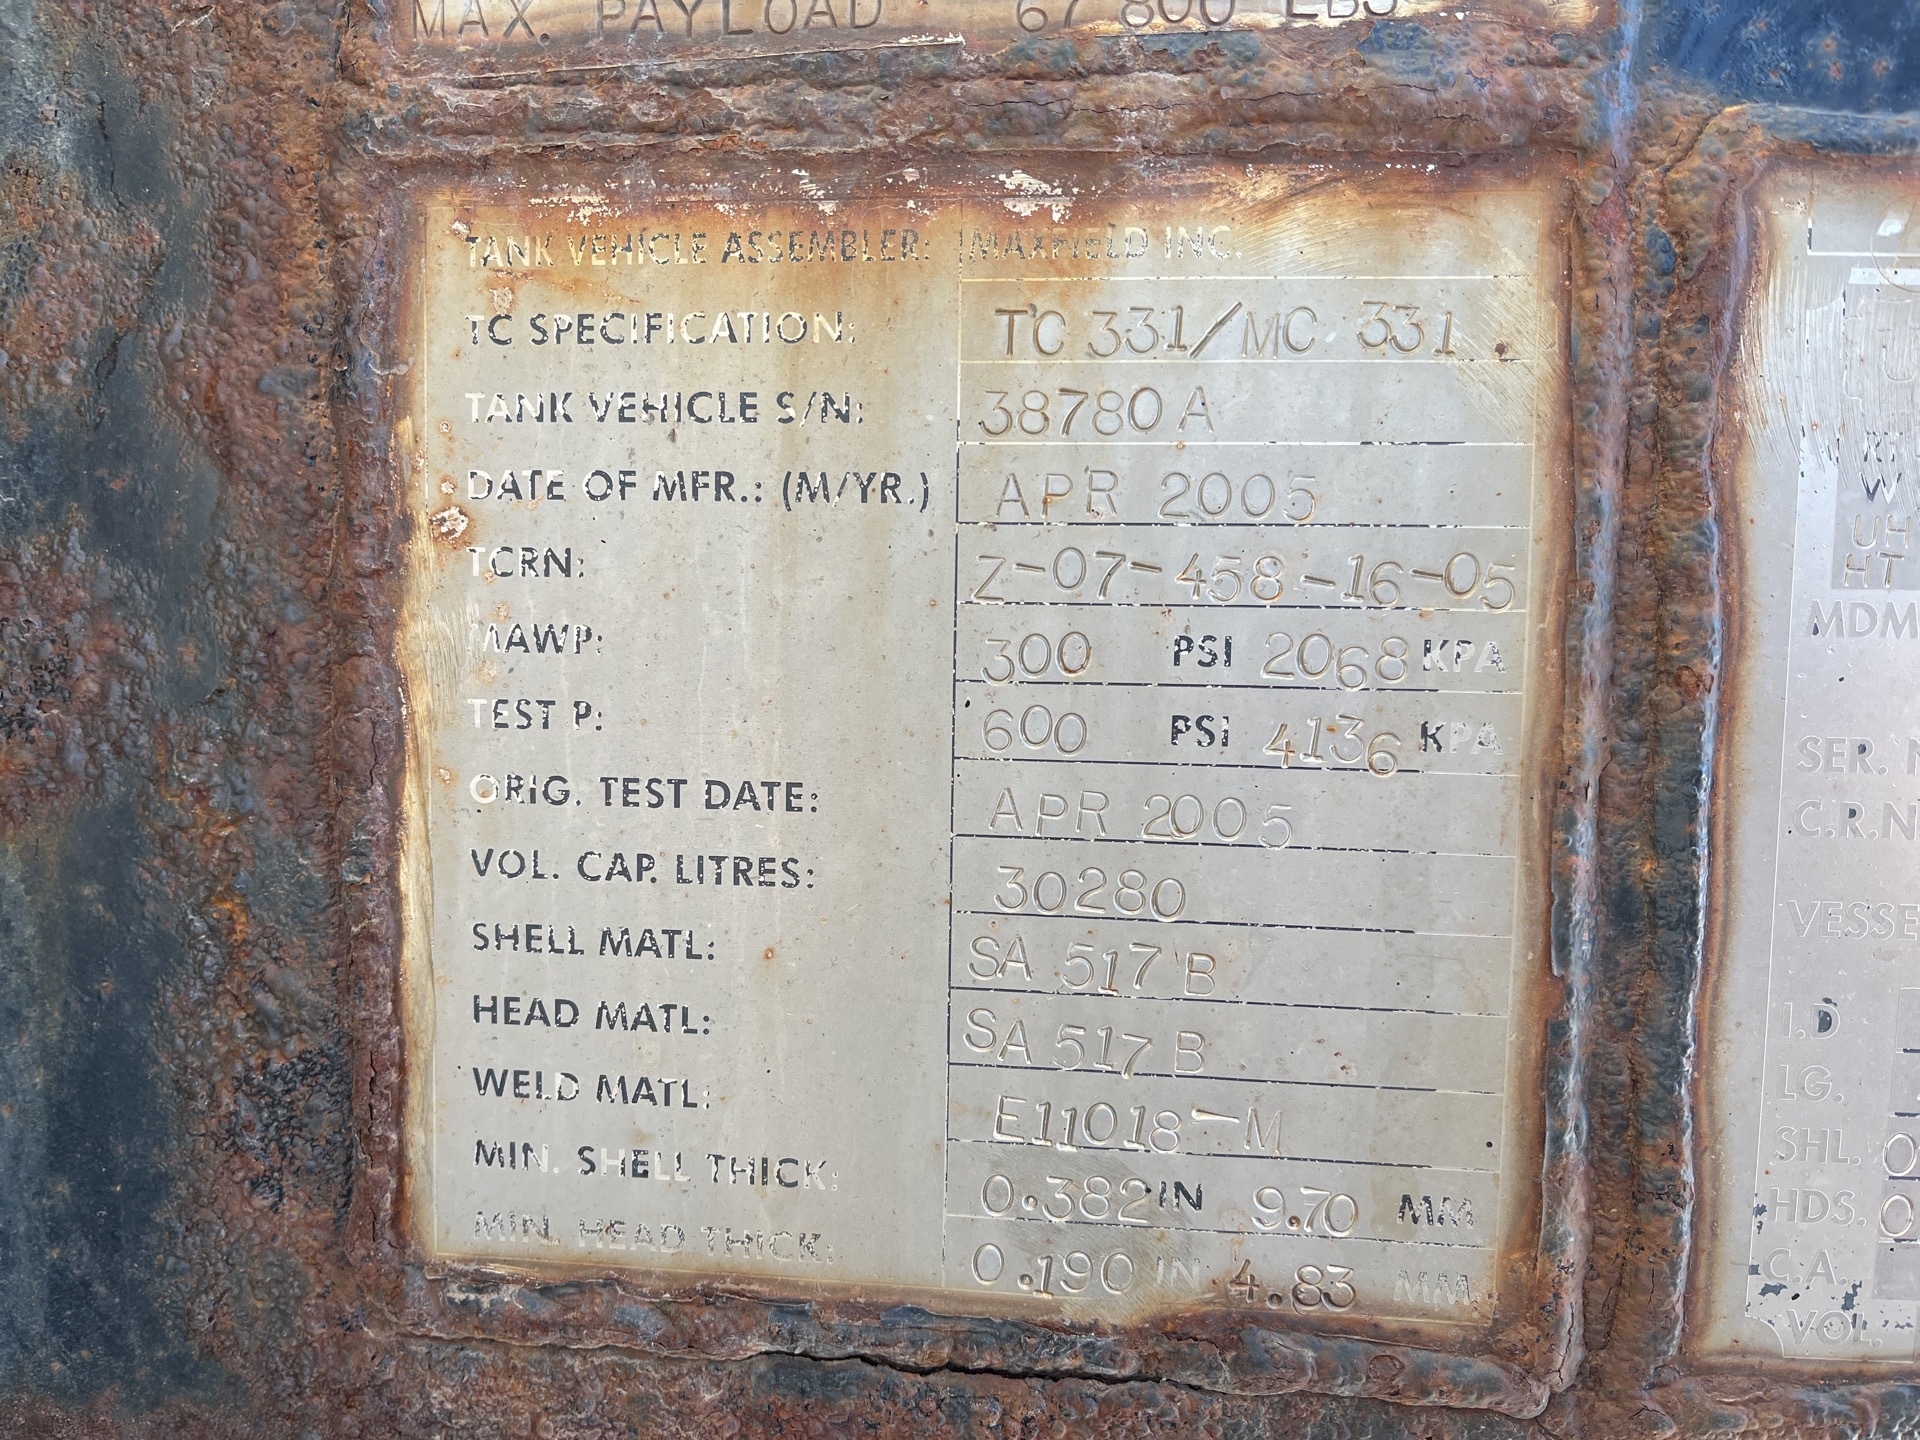 MAX. PAYLOAD 67 800 LBS
TANK VEHICLE ASSEMBLER: MAXFIELD INC.
TC SPECIFICATION: TC 331/MC 331
TANK VEHICLE S/N: 38780 A
DATE OF MFR.: (M/YR.) APR 2005
TCRN: Z-07-458-16-05
MAWP: 300 PSI 2068 KPA
TEST P: 600 PSI 4136 KPA
ORIG. TEST DATE: APR 2005
VOL. CAP. LITRES: 30280
SHELL MATL: SA 517 B
HEAD MATL: SA 517 B
WELD MATL: E11018-M
MIN. SHELL THICK: 0.382 IN 9.70 MM
MIN. HEAD THICK: 0.190 IN 4.83 MM
W
UH
HT
MDM
SER.
C.R.N
VESSE
I.D
LG.
SHL. 0
HDS. 0
C.A.
VOL.